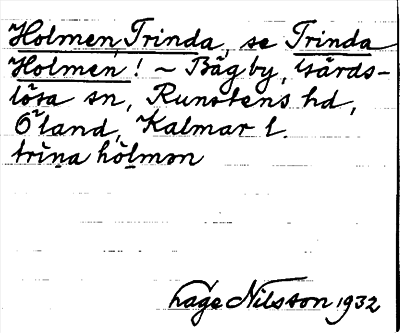 Holmen, Trinda, se Trinda
Holmen! ~ Bägby, Gärds-
lösa sn, Runstens hd,
Öland, Kalmar l.
trìṇa hòḷmən
hage Nilsson 1932